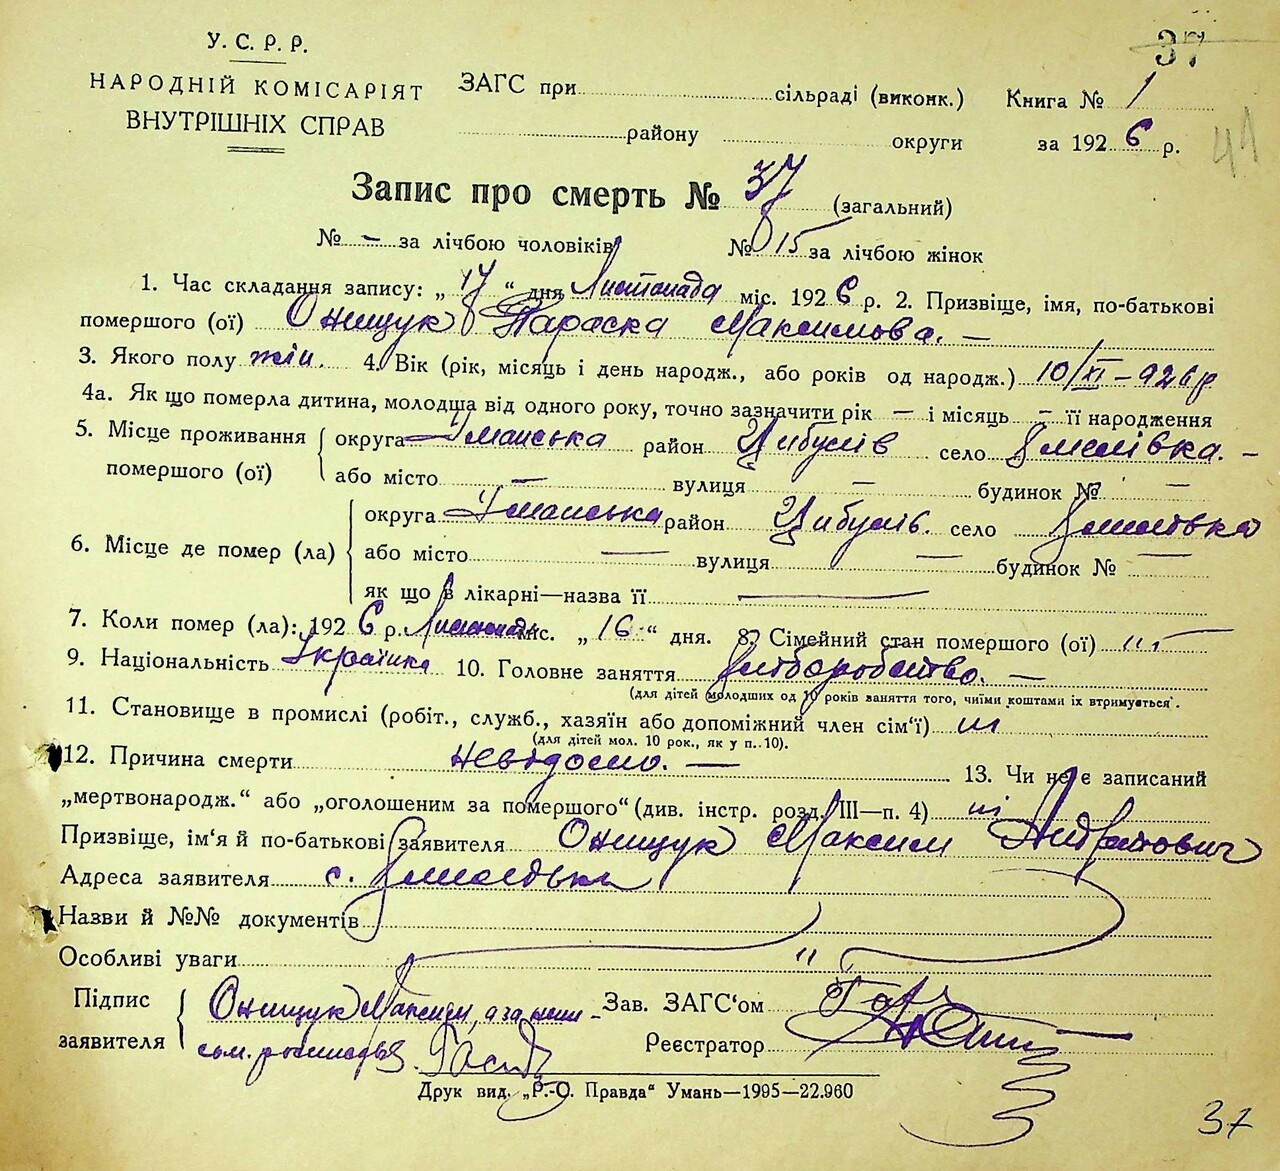 37
У. С. Р. Р.
НАРОДНІЙ КОМІСАРІЯТ
ВНУТРІШНІХ СПРАВ
ЗАГС при сільраді (виконк.) Книга № 1
району округи за 1926 р.
41
Запис про смерть № 37 (загальний)
№ – за лічбою чоловіків № 15 за лічбою жінок
1. Час складання запису: „17“ дня Листопада міс. 1926 р. 2. Призвіще, імя, по-батькові
помершого (ої) Онищук Параска Максимова. —
3. Якого полу жін. 4. Вік (рік, місяць і день народж., або років од народж.) 10/XI – 926 р
4а. Як що померла дитина, молодша від одного року, точно зазначити рік — і місяць – її народження
5. Місце проживання помершого (ої) округа Уманська район Цибулів село –
або місто — вулиця — будинок № —
6. Місце де помер (ла) округа Уманська район Цибулів. село
або місто — вулиця — будинок № —
як що в лікарні—назва її —
7. Коли помер (ла): 1926 р. Листопада міс. „16“ дня. 8. Сімейний стан помершого (ої)
9. Національність Українка 10. Головне заняття хліборобство. —
(для дітей молодших од 10 років заняття того, чиїми коштами їх втримується).
11. Становище в промислі (робіт., служб., хазяїн або допоміжний член сім'ї)
(для дітей мол. 10 рок., як у п. 10).
12. Причина смерти невідомо. — 13. Чи не є записаний
„мертвонародж.“ або „оголошеним за помершого“ (див. інстр. розд. III—п. 4) ні
Призвіще, ім'я й по-батькові заявителя Онищук Максим
Адреса заявителя с.
Назви й №№ документів
Особливі уваги "
Підпис заявителя Онищук Максим, а за
Зав. ЗАГС'ом
Реєстратор
Друк вид. „Р.-О. Правда“ Умань—1995—22.960
37